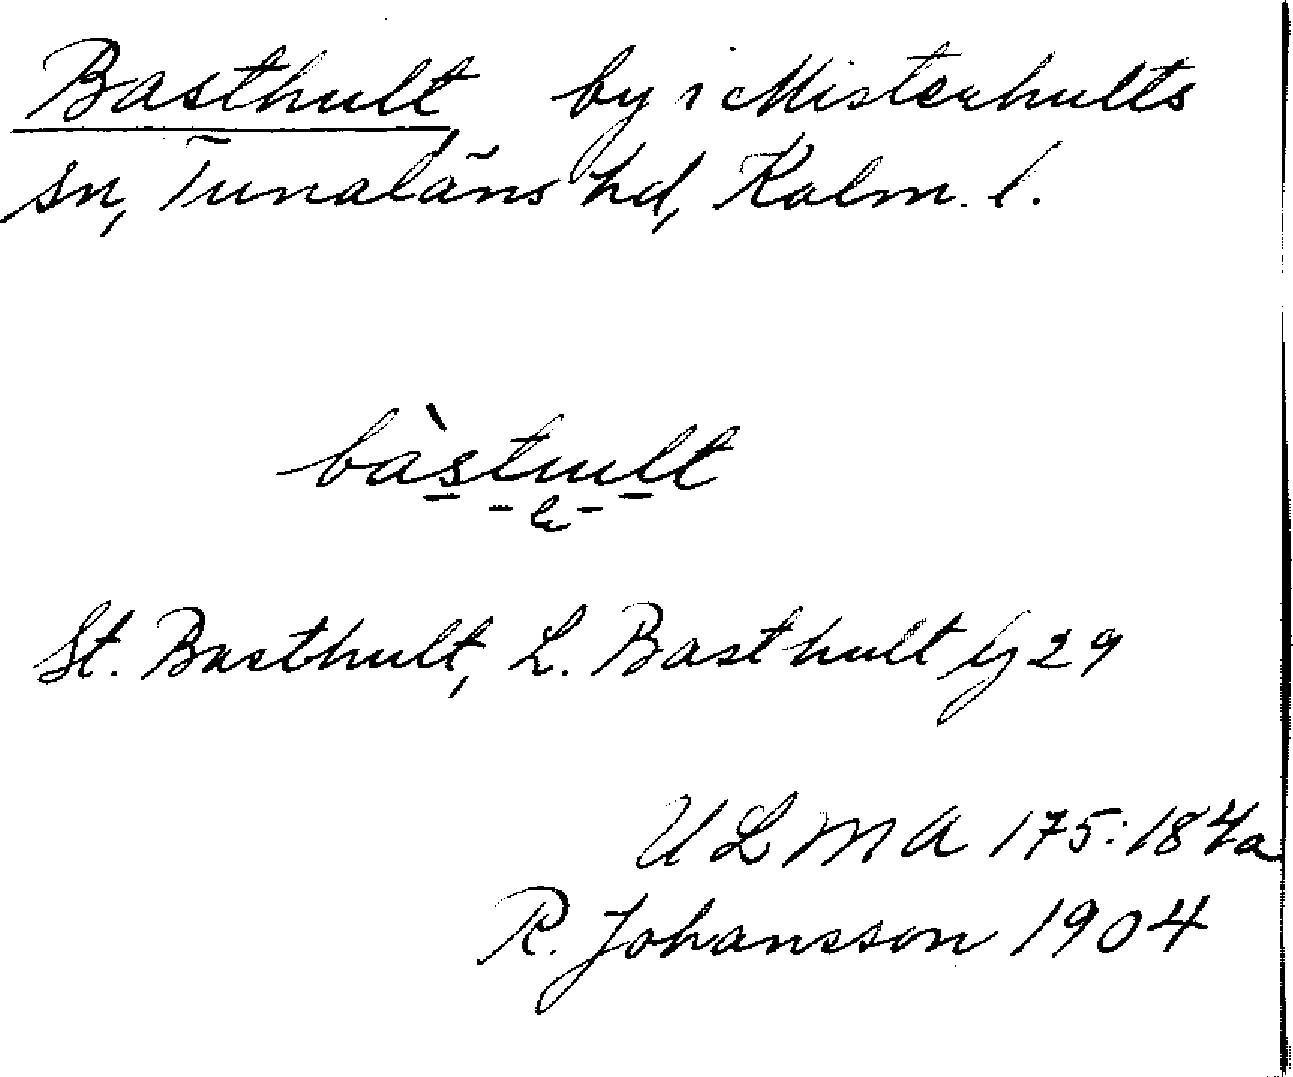 Basthult by i Misterhults
sn, Tunaläns hd, Kalm. l.
bàstult
St. Basthult, L. Basthult by 29
ULMA 175:184a
R. Johansson 1904